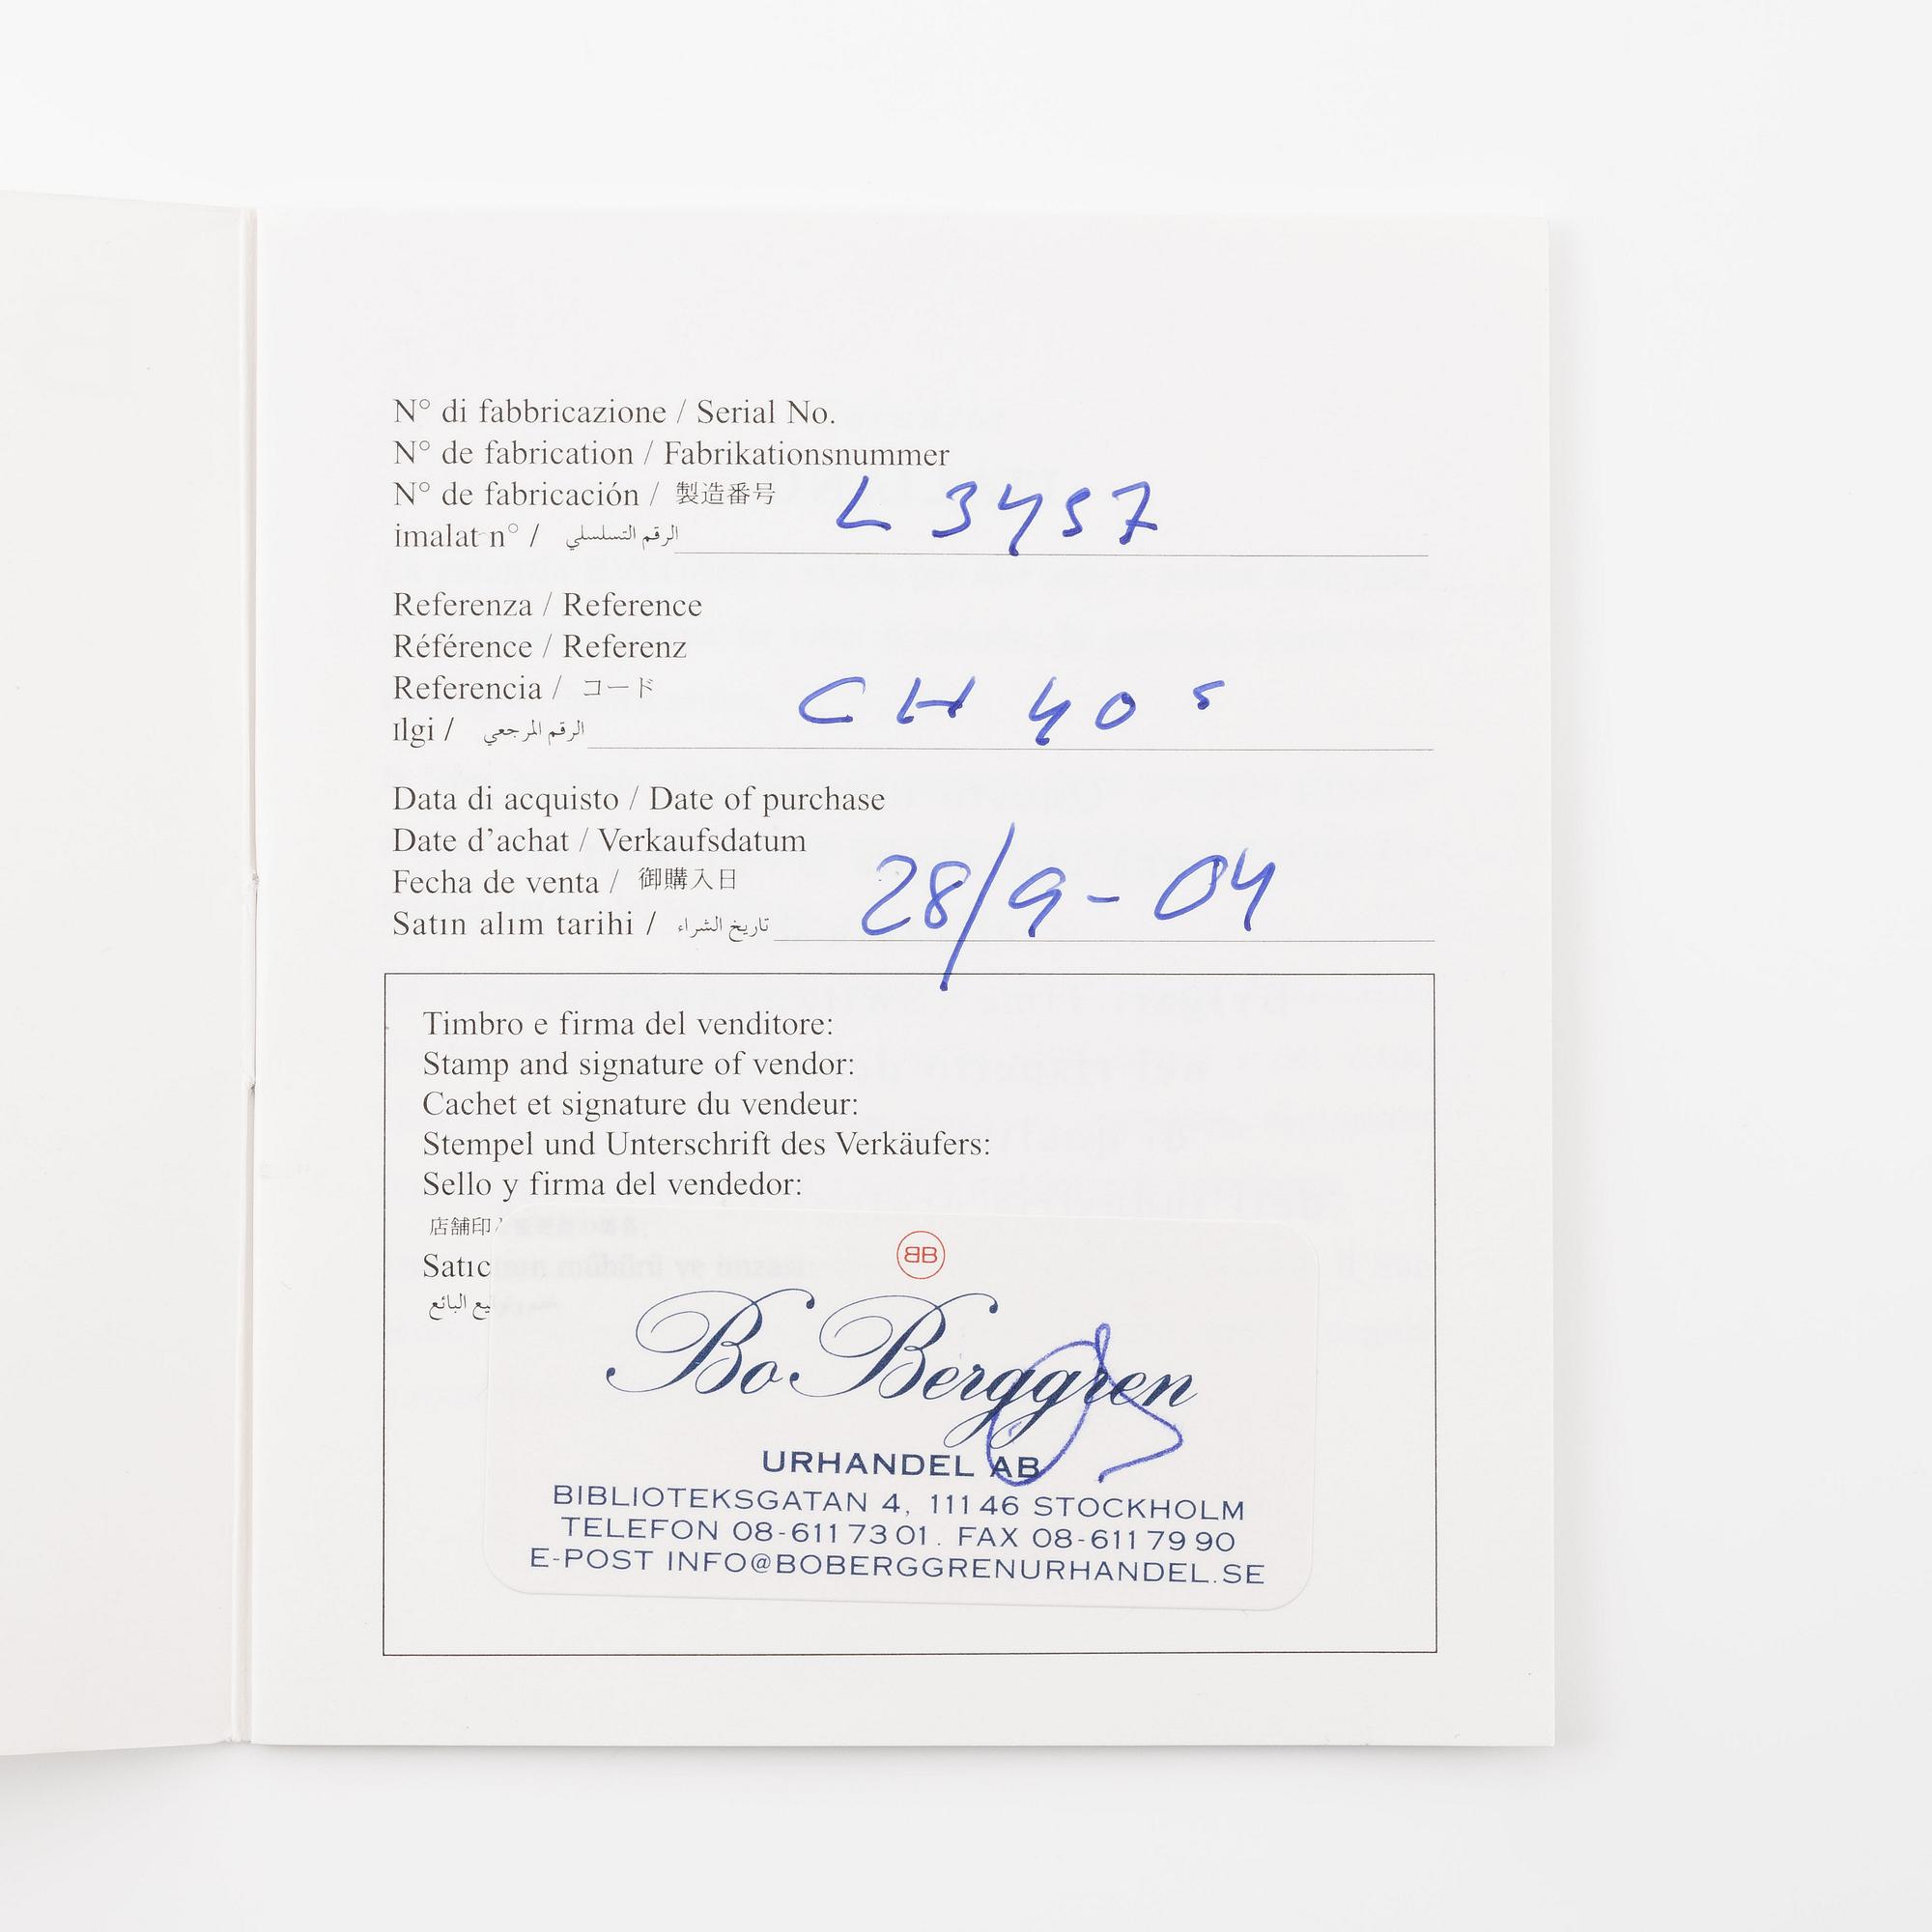 N° di fabbricazione / Serial No.
N° de fabrication / Fabrikationsnummer
N° de fabricación / 製造番号
imalat n° / الرقم التسلسلي L 3457
Referenza / Reference
Référence / Referenz
Referencia / コード
Ilgi / الرقم المرجعي CH 40 s
Data di acquisto / Date of purchase
Date d'achat / Verkaufsdatum
Fecha de venta / 御購入日
Satın alım tarihi / تاريخ الشراء 28/9-04
Timbro e firma del venditore:
Stamp and signature of vendor:
Cachet et signature du vendeur:
Stempel und Unterschrift des Verkäufers:
Sello y firma del vendedor:
店舗印
Satıc
يع البائع
BB
Bo Berggren
URHANDEL AB
BIBLIOTEKSGATAN 4, 111 46 STOCKHOLM
TELEFON 08-611 73 01. FAX 08-611 79 90
E-POST INFO@BOBERGGRENURHANDEL.SE